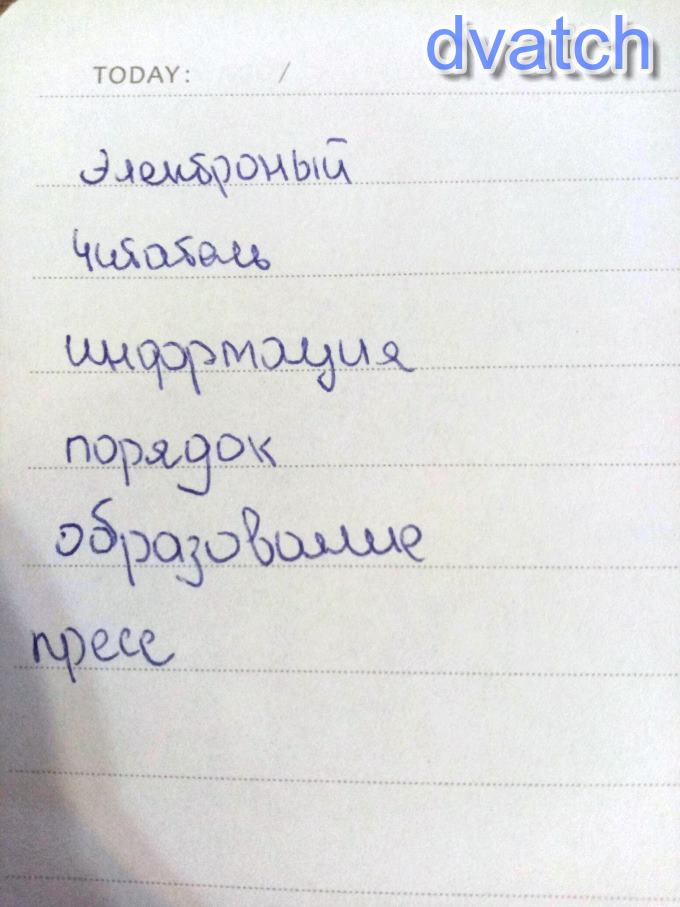 dvatch
TODAY: /
электроный
читатель
информация
порядок
образование
пресс